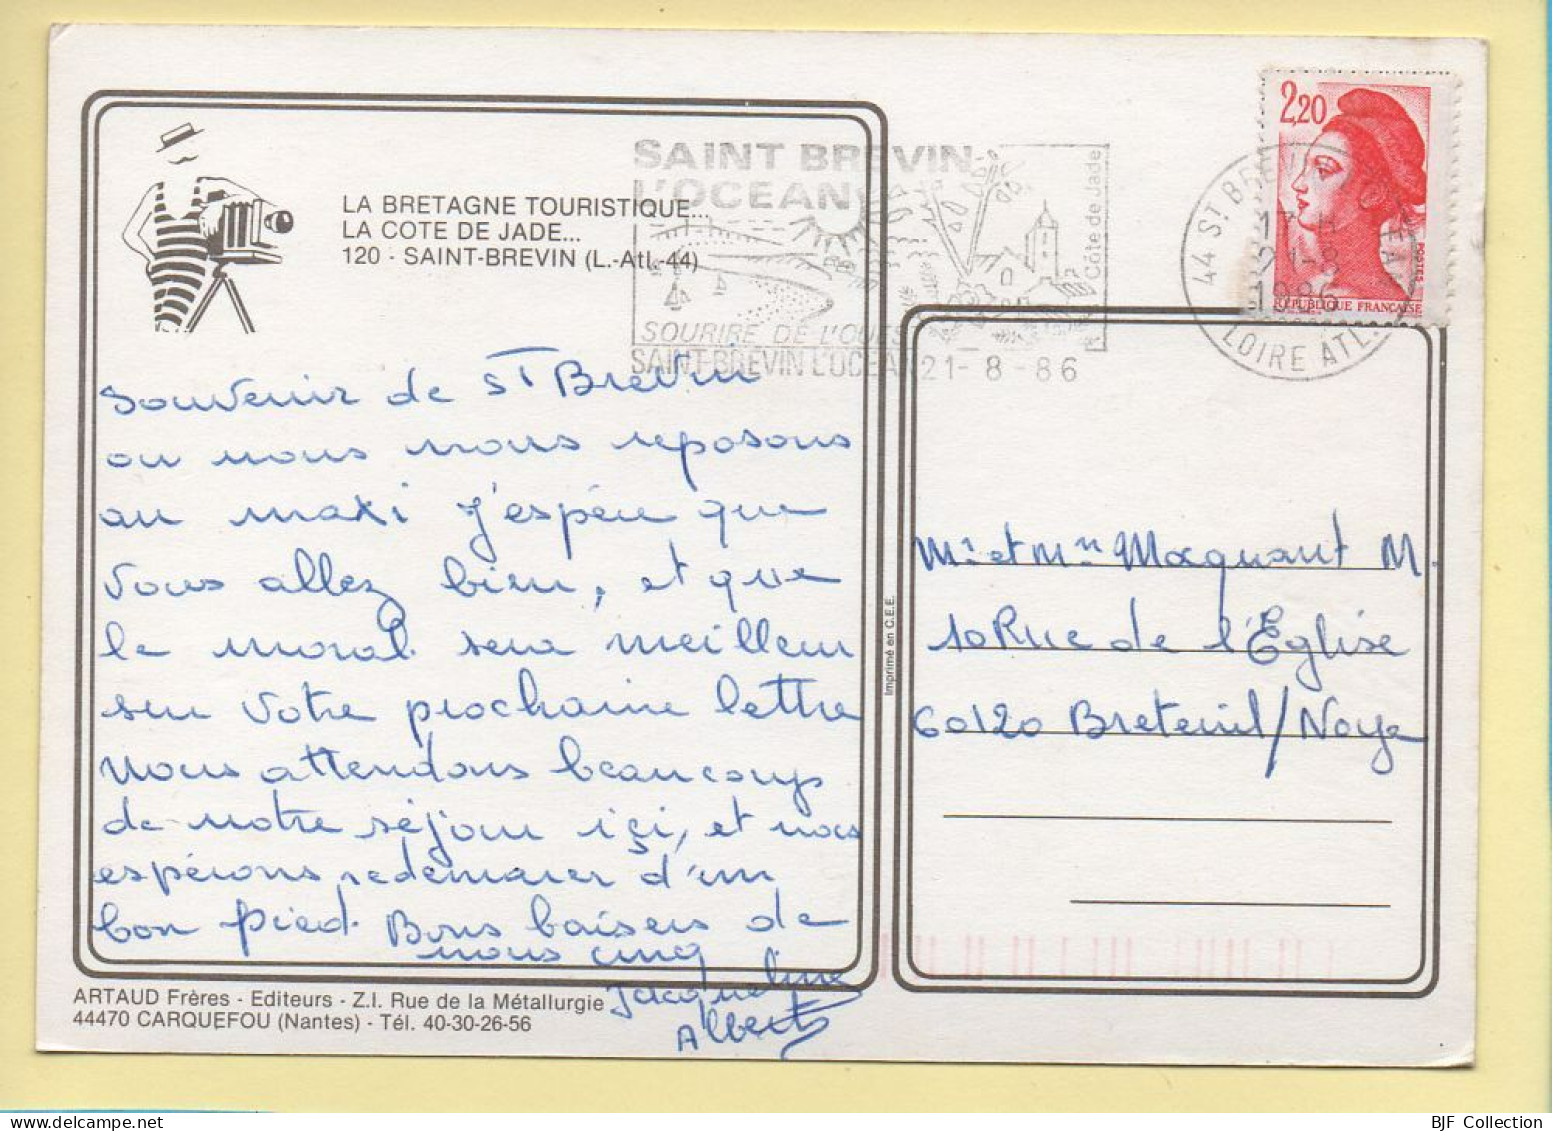 LA BRETAGNE TOURISTIQUE...
LA COTE DE JADE...
120 - SAINT-BREVIN (L.-Atl.-44)
SAINT BREVIN
L'OCEAN
Côte de Jade
SOURIRE DE L'OUEST
SAINT-BREVIN L'OCEAN 21-8-86
2,20
RÉPUBLIQUE FRANÇAISE
POSTES
44 ST BREVIN L'OCEAN
17 H
21-8
1986
LOIRE ATL.
Souvenir de St Brevin
ou nous nous reposons
au maxi J'espère que
vous allez bien, et que
le moral sera meilleur
sur votre prochaine lettre
Nous attendons beaucoup
de notre séjour içi, et nous
espérons redemarer d'un
bon pied. Bons baisers de
nous cinq
Jacqueline
Albert
Imprimé en C.E.E.
Mr et Mme Macquant M.
10 Rue de l'Église
60120 Breteuil/Noye
ARTAUD Frères - Editeurs - Z.I. Rue de la Métallurgie
44470 CARQUEFOU (Nantes) - Tél. 40-30-26-56
BJF Collection